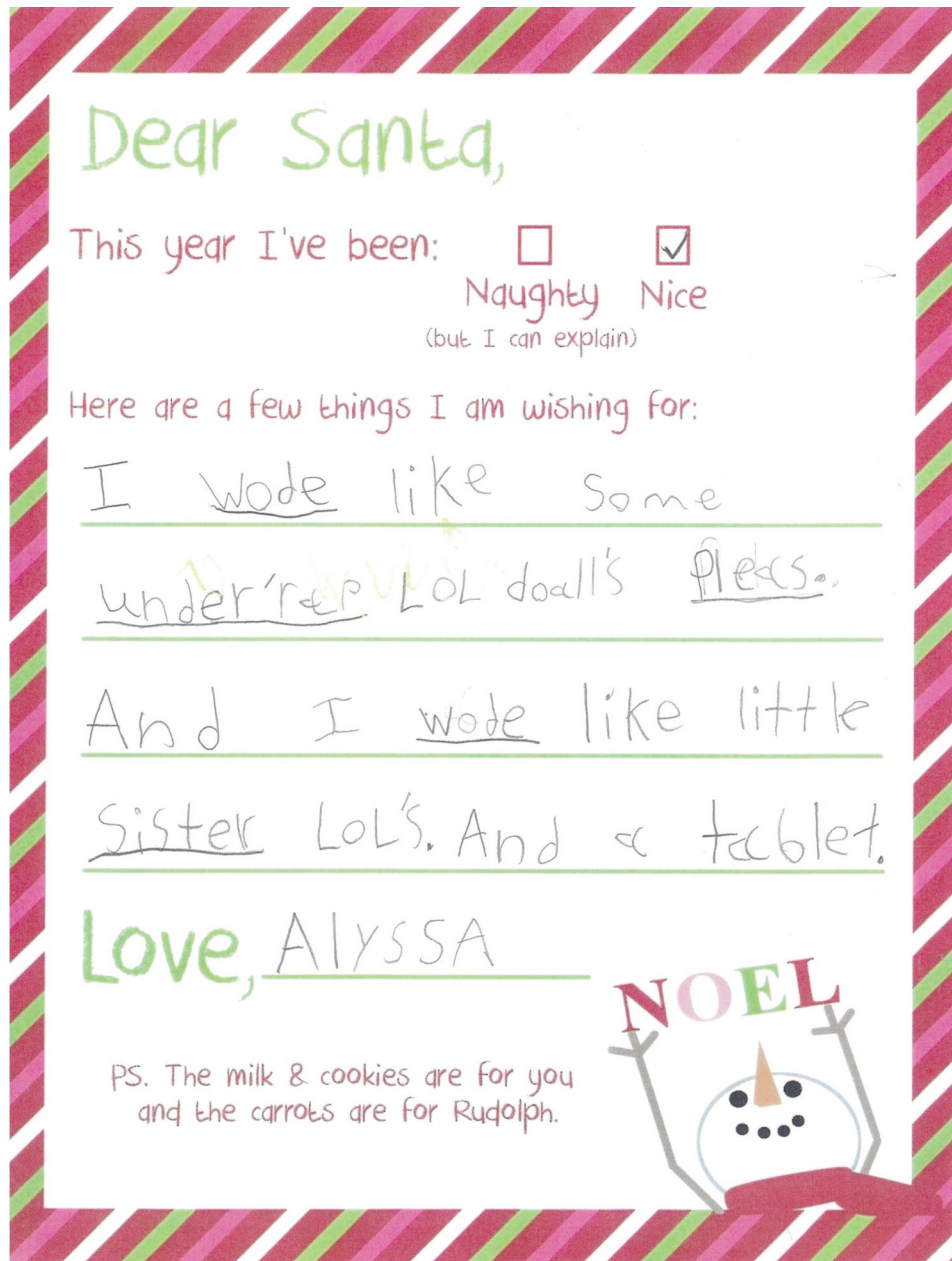 Dear Santa,
This year I've been:
Naughty Nice
(but I can explain)
Here are a few things I am wishing for:
I wode like some
under'rap LOL doall's pleas.
And I wode like little
Sister LOL's. And a tablet.
Love, Alyssa
NOEL
PS. The milk & cookies are for you
and the carrots are for Rudolph.